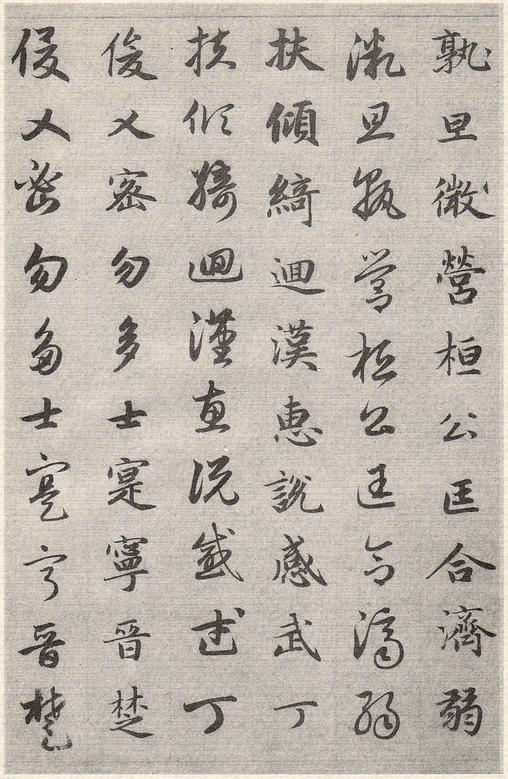 孰旦微營桓公匡合濟弱
孰旦微營桓公匡合濟弱
扶傾綺迴漢惠說感武丁
扶傾綺迴漢惠說感武丁
俊乂密勿多士寔寧晉楚
俊乂密勿多士寔寧晉楚